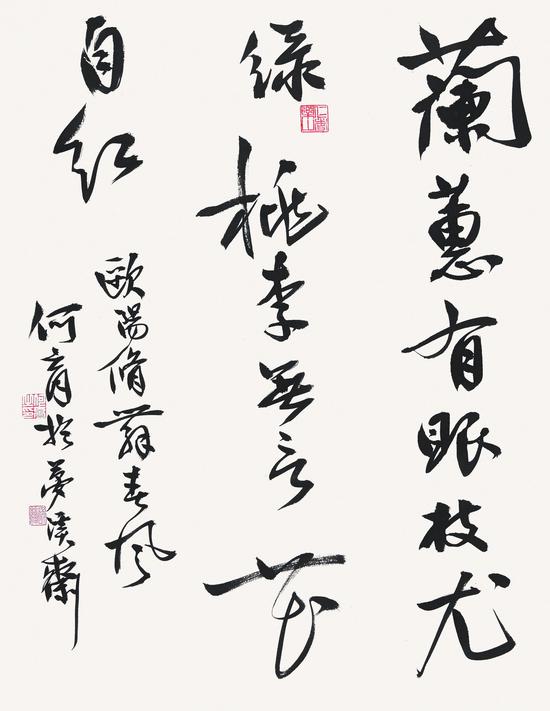 蘭蕙有眼枝尤
緑桃李無言花
自紅
歐陽脩舞春風
何育於夢溪齋